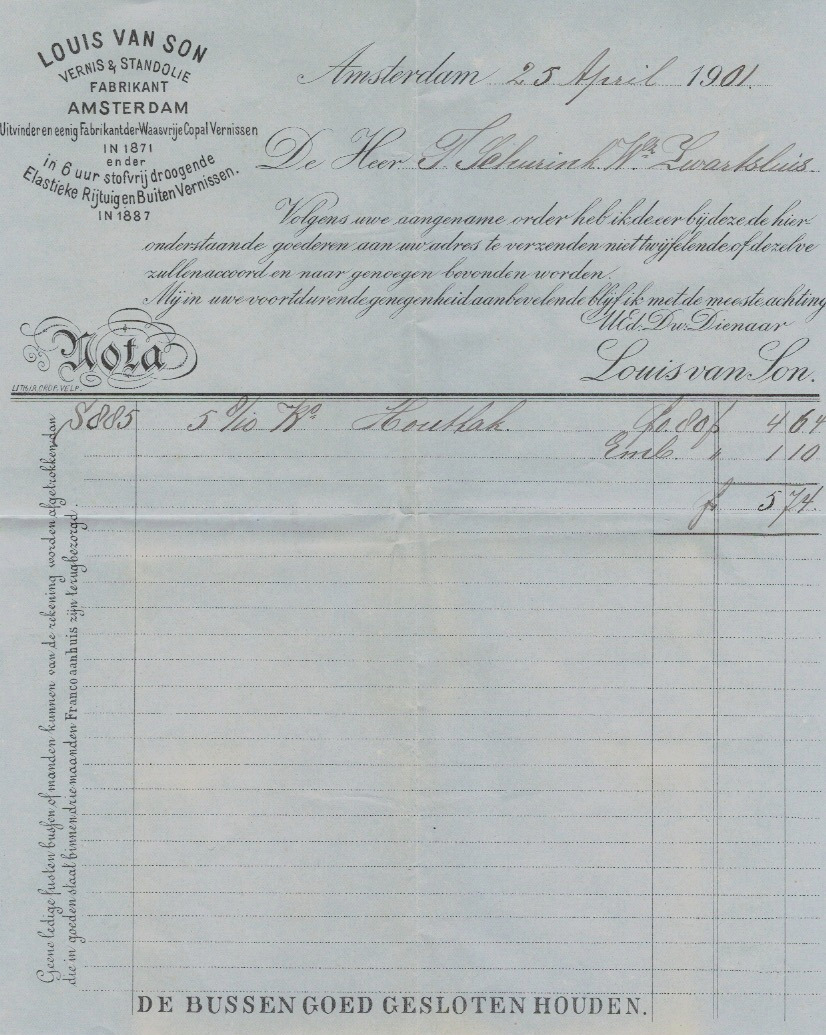 LOUIS VAN SON
VERNIS & STANDOLIE
FABRIKANT
AMSTERDAM
Uitvinder en eenig Fabrikant der Waasvrije Copal Vernissen
IN 1871
en der
in 6 uur stofvrij droogende
Elastieke Rijtuig en Buiten Vernissen.
IN 1887
Amsterdam 25 April 1901.
De Heer T. Schurink Wzn Zwartsluis
Volgens uwe aangename order heb ik de eer bij deze de hier-
onderstaande goederen aan uw adres te verzenden niet twijfelende of dezelve
zullen accoord en naar genoegen bevonden worden.
Mij in uwe voortdurende genegenheid aanbevelende blijf ik met de meeste achting
UEd. Dw. Dienaar
Louis van Son.
Nota
S 885 5 8/10 Ko Houtlak. f 0 80 f 4 64
Emb. " 1 10
f 5 74
Geene ledige fusten bussen of manden kunnen van de rekening worden afgetrokken dan
die in goeden staat binnen drie maanden Franco aan huis zijn terugbezorgd.
DE BUSSEN GOED GESLOTEN HOUDEN.